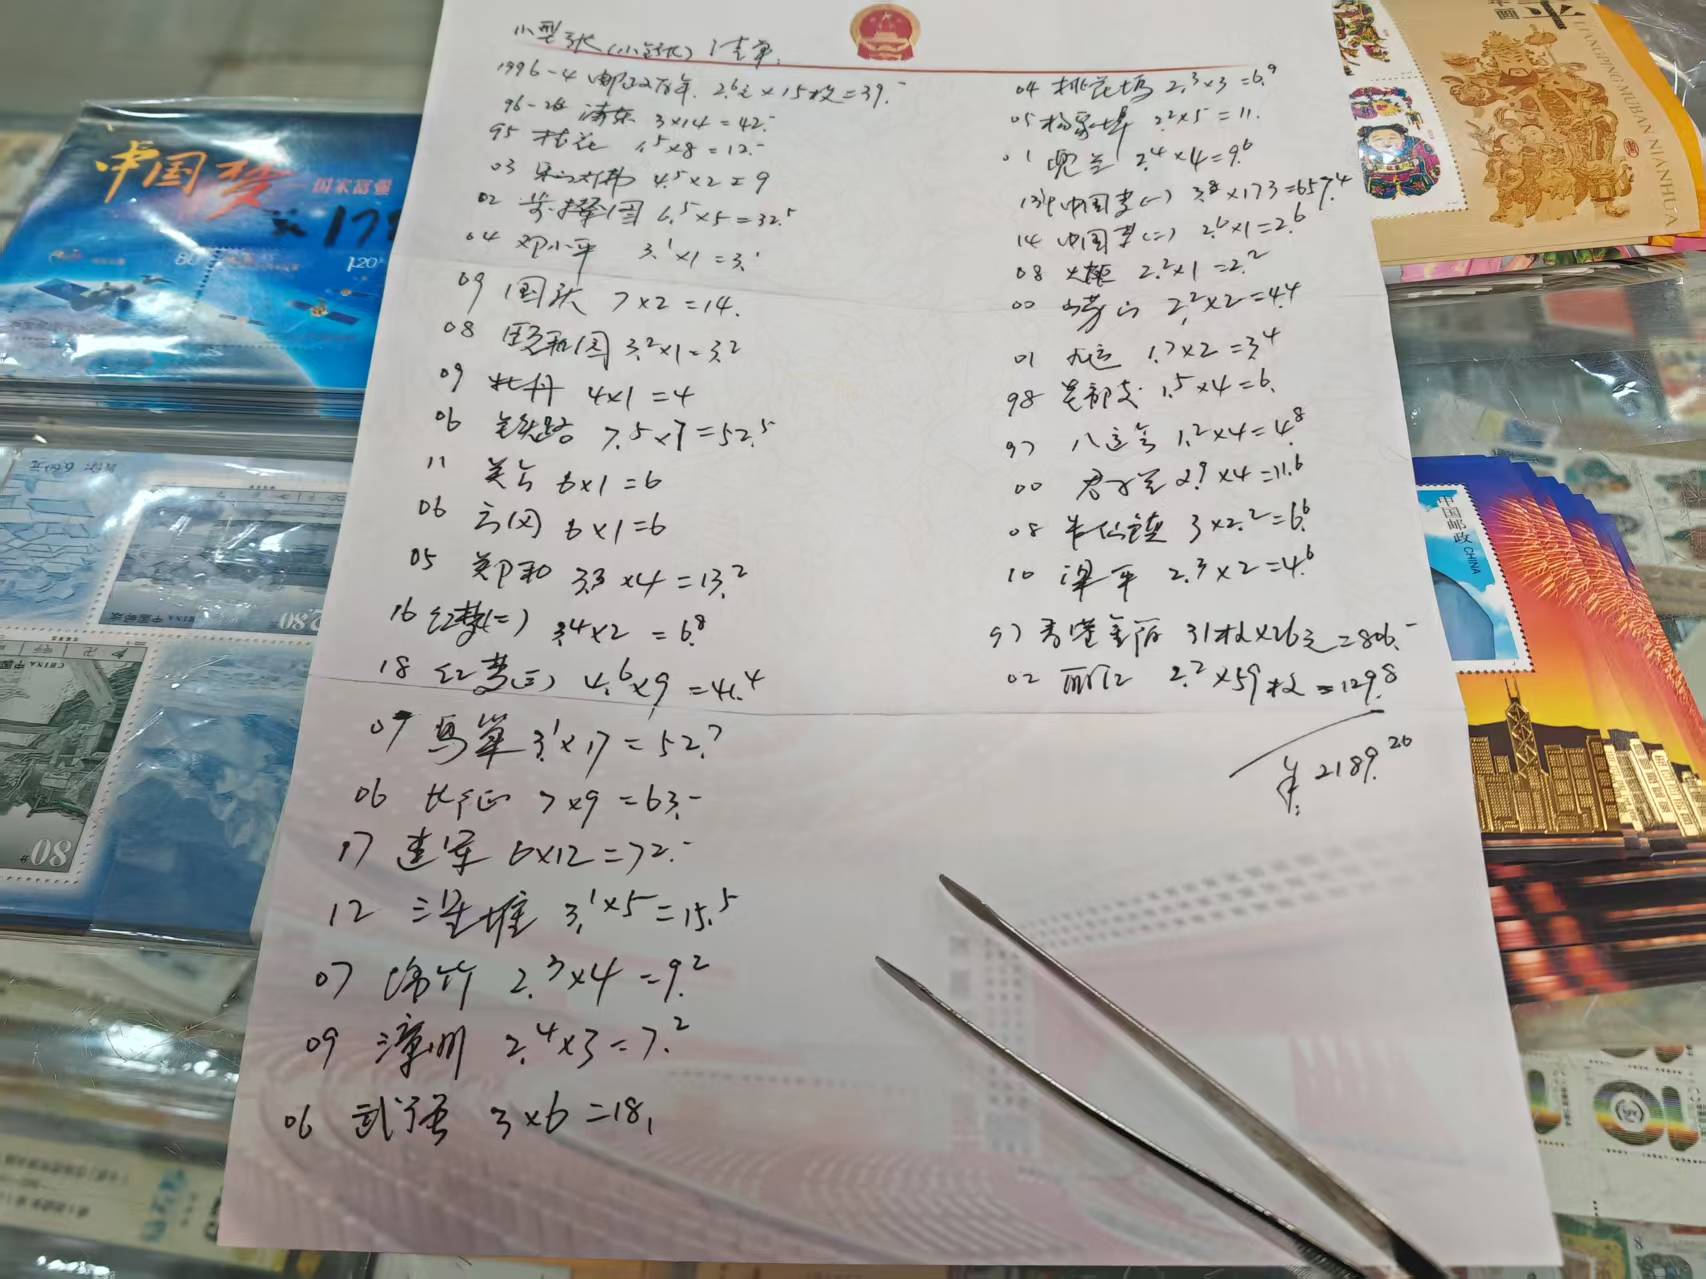 小型张(小全张)清单.
1996-4 邮政百年. 2.6元×15枚=39.-
96-26 浦东 3×14=42.-
95 桂花 1.5×8=12.-
03 乐山大佛 4.5×2=9
02 步辇图 6.5×5=32.5
04 邓小平 3.1×1=3.1
09 国庆 7×2=14.
08 颐和园 3.2×1=3.2
09 牡丹 4×1=4
06 青铁路 7.5×7=52.5
11 关公 6×1=6
06 云冈 6×1=6
05 郑和 3.3×4=13.2
16 红梦(二) 3.4×2=6.8
18 红梦(三) 4.6×9=41.4
07 鸟巢 3.1×17=52.7
06 长征 7×9=63.-
17 建军 6×12=72.-
12 三星堆 3.1×5=15.5
07 绵竹 2.3×4=9.2
09 漳州 2.4×3=7.2
06 武强 3×6=18.
04 桃花坞 2.3×3=6.9
05 杨家埠 2.2×5=11.
01 兜兰 2.4×4=9.6
13年中国梦(一) 3.8×173=657.4
14 中国梦(二) 2.6×1=2.6
08 火炬 2.2×1=2.2
00 崂山 2.2×2=4.4
01 九运 1.7×2=3.4
98 1.5×4=6.
97 八运会 1.2×4=4.8
00 君子兰 2.9×4=11.6
08 朱仙镇 3×2.2=6.6
10 梁平 2.3×2=4.6
97 香港金箔 31枚×26元=806.-
02 丽江 2.2×59枚=129.8
共: 2189.20
中国梦
国家富强
178
80
1.20
80分
中国邮政
CHINA
LIANGPING MUBAN NIANHUA